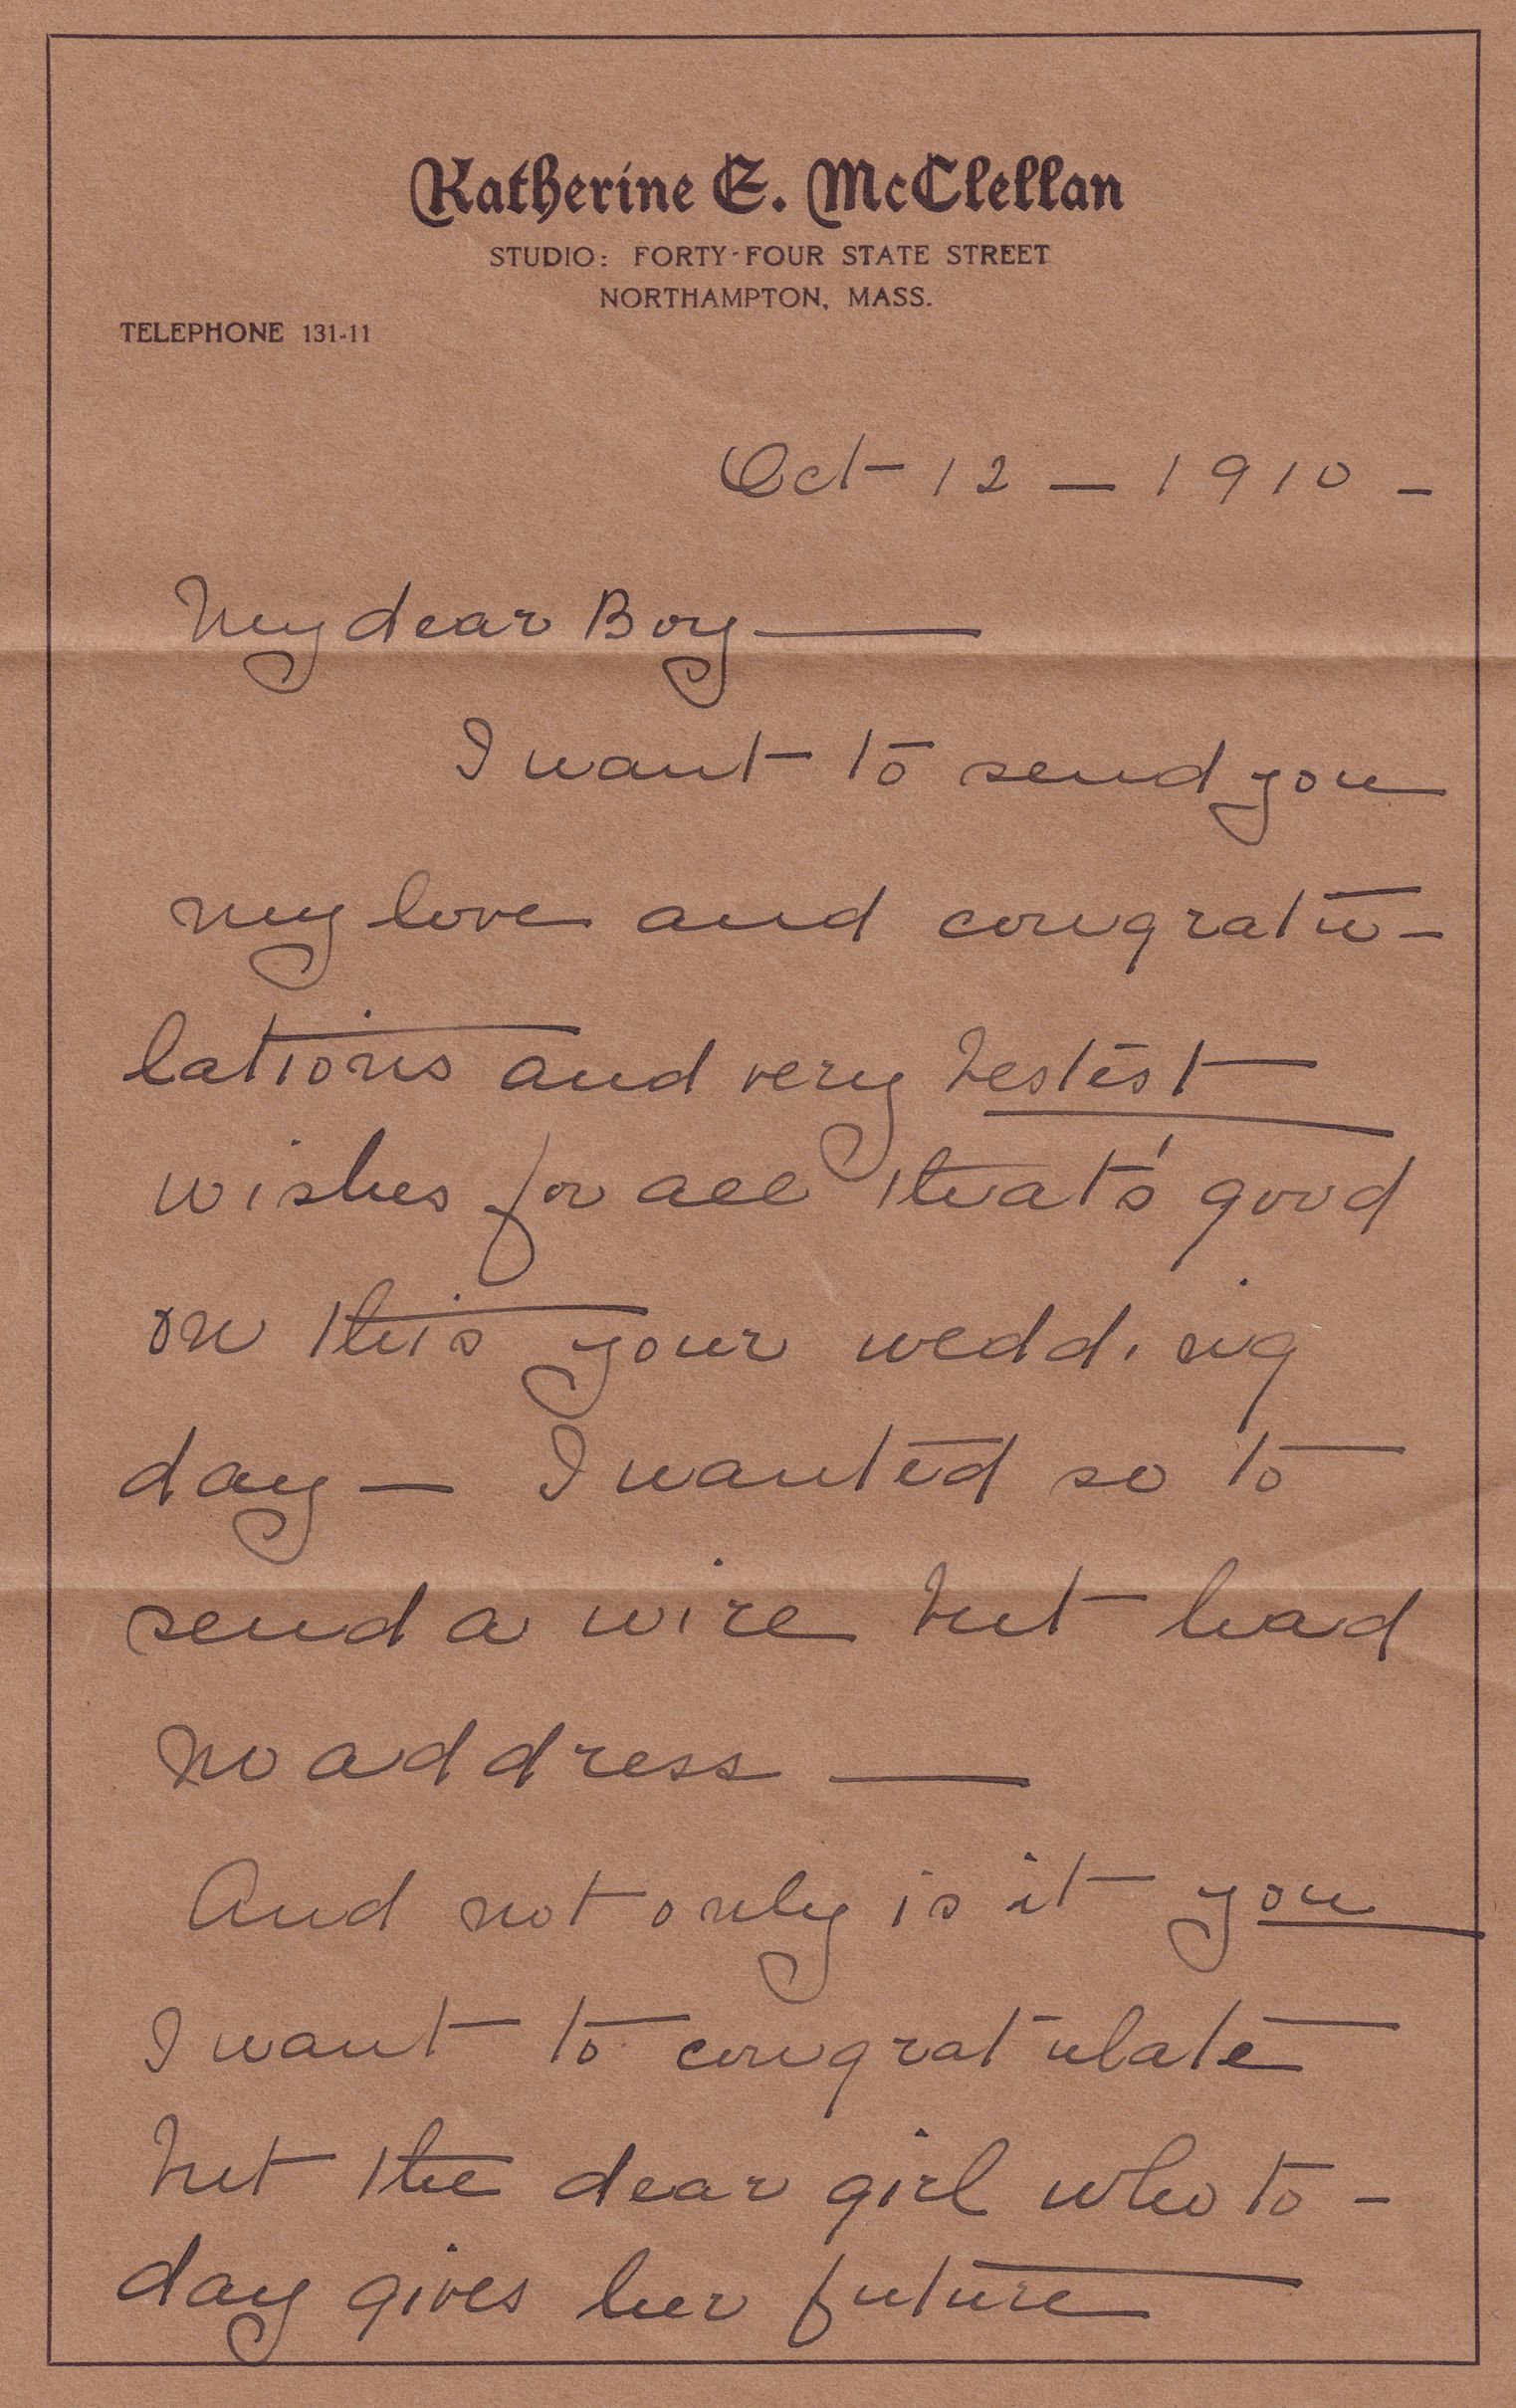 Katherine E. McClellan
STUDIO: FORTY-FOUR STATE STREET
NORTHAMPTON, MASS.
TELEPHONE 131-11
Oct 12 — 1910 -
My dear Boy —
I want to send you
my love and congratu-
lations and very bestest
wishes for all that's good
on this your wedding
day — I wanted so to
send a wire but had
no address —
And not only is it you
I want to congratulate
but the dear girl who to-
day gives her future